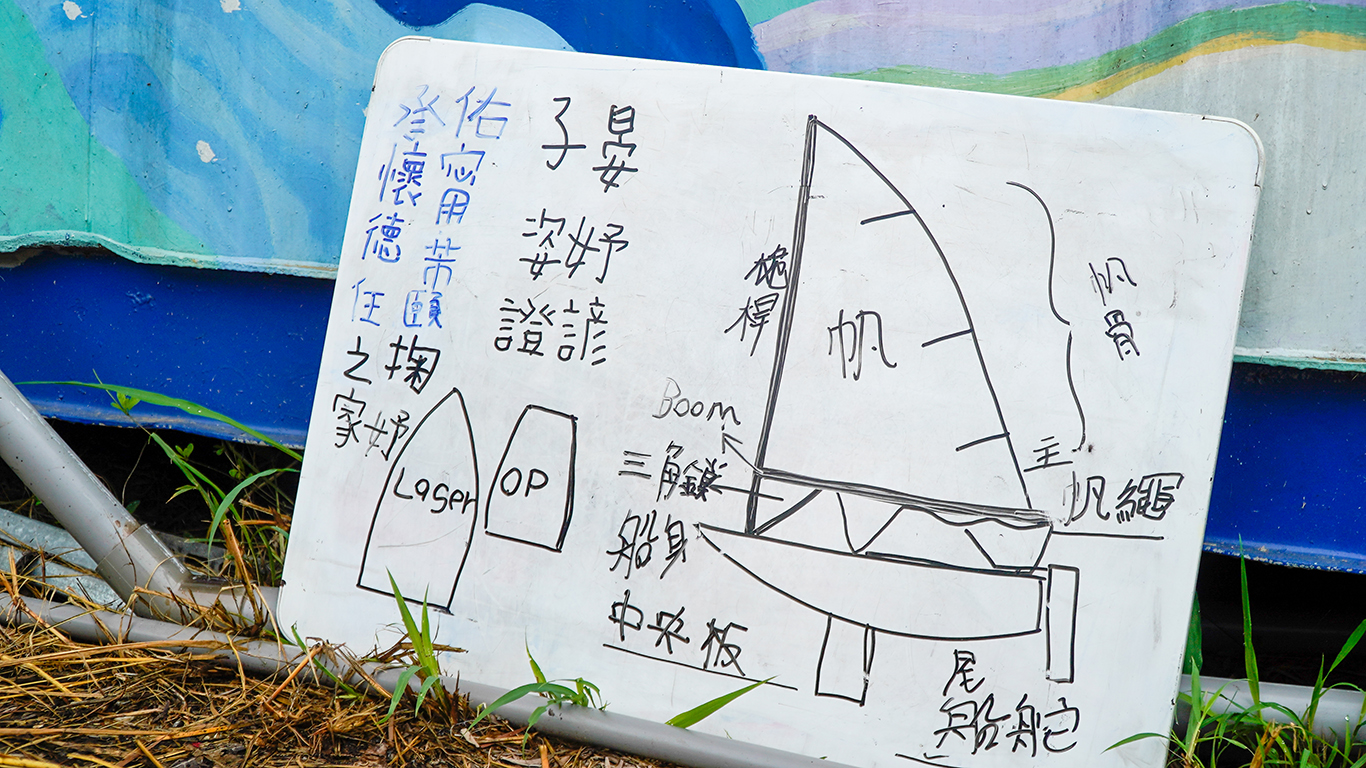 承佑
懷
德用
任頤
之掬
家妤
子晏
姿妤
證諺
Laser
OP
桅桿
帆
帆骨
Boom
三角鎖
主帆繩
船身
中央板
尾
船舵